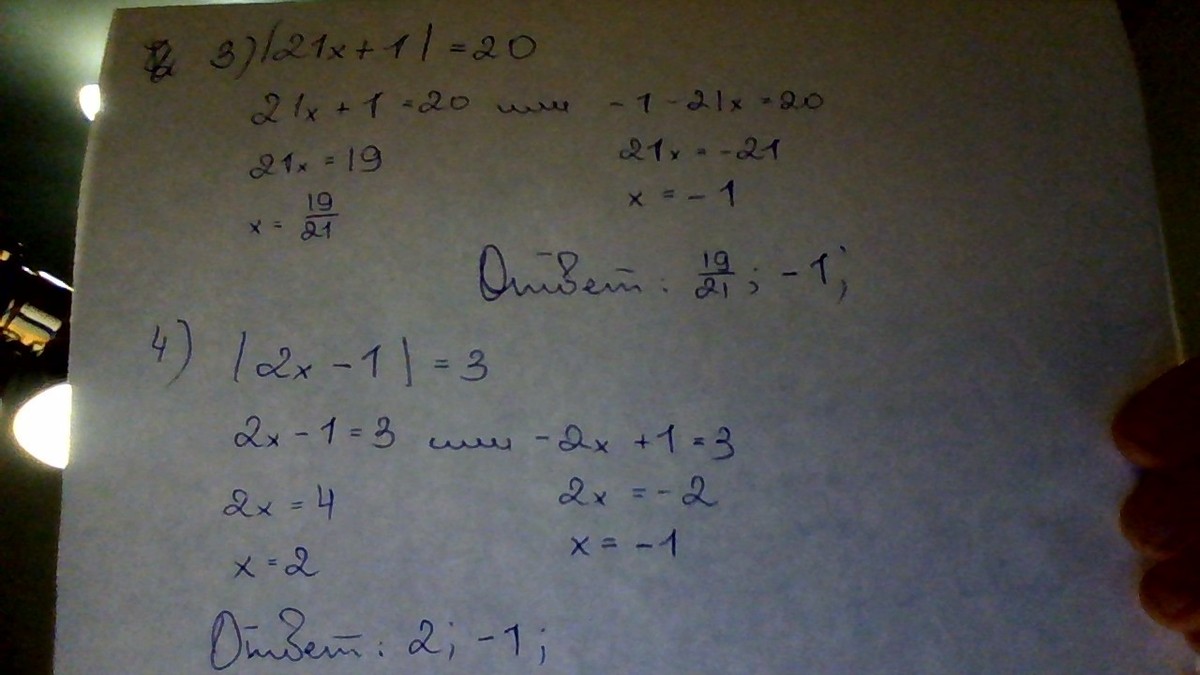 3) |21x + 1| = 20
21x + 1 = 20 или -1 - 21x = 20
21x = 19 21x = -21
x = 19/21 x = -1
Ответ: 19/21; -1;
4) |2x - 1| = 3
2x - 1 = 3 или -2x + 1 = 3
2x = 4 2x = -2
x = 2 x = -1
Ответ: 2; -1;